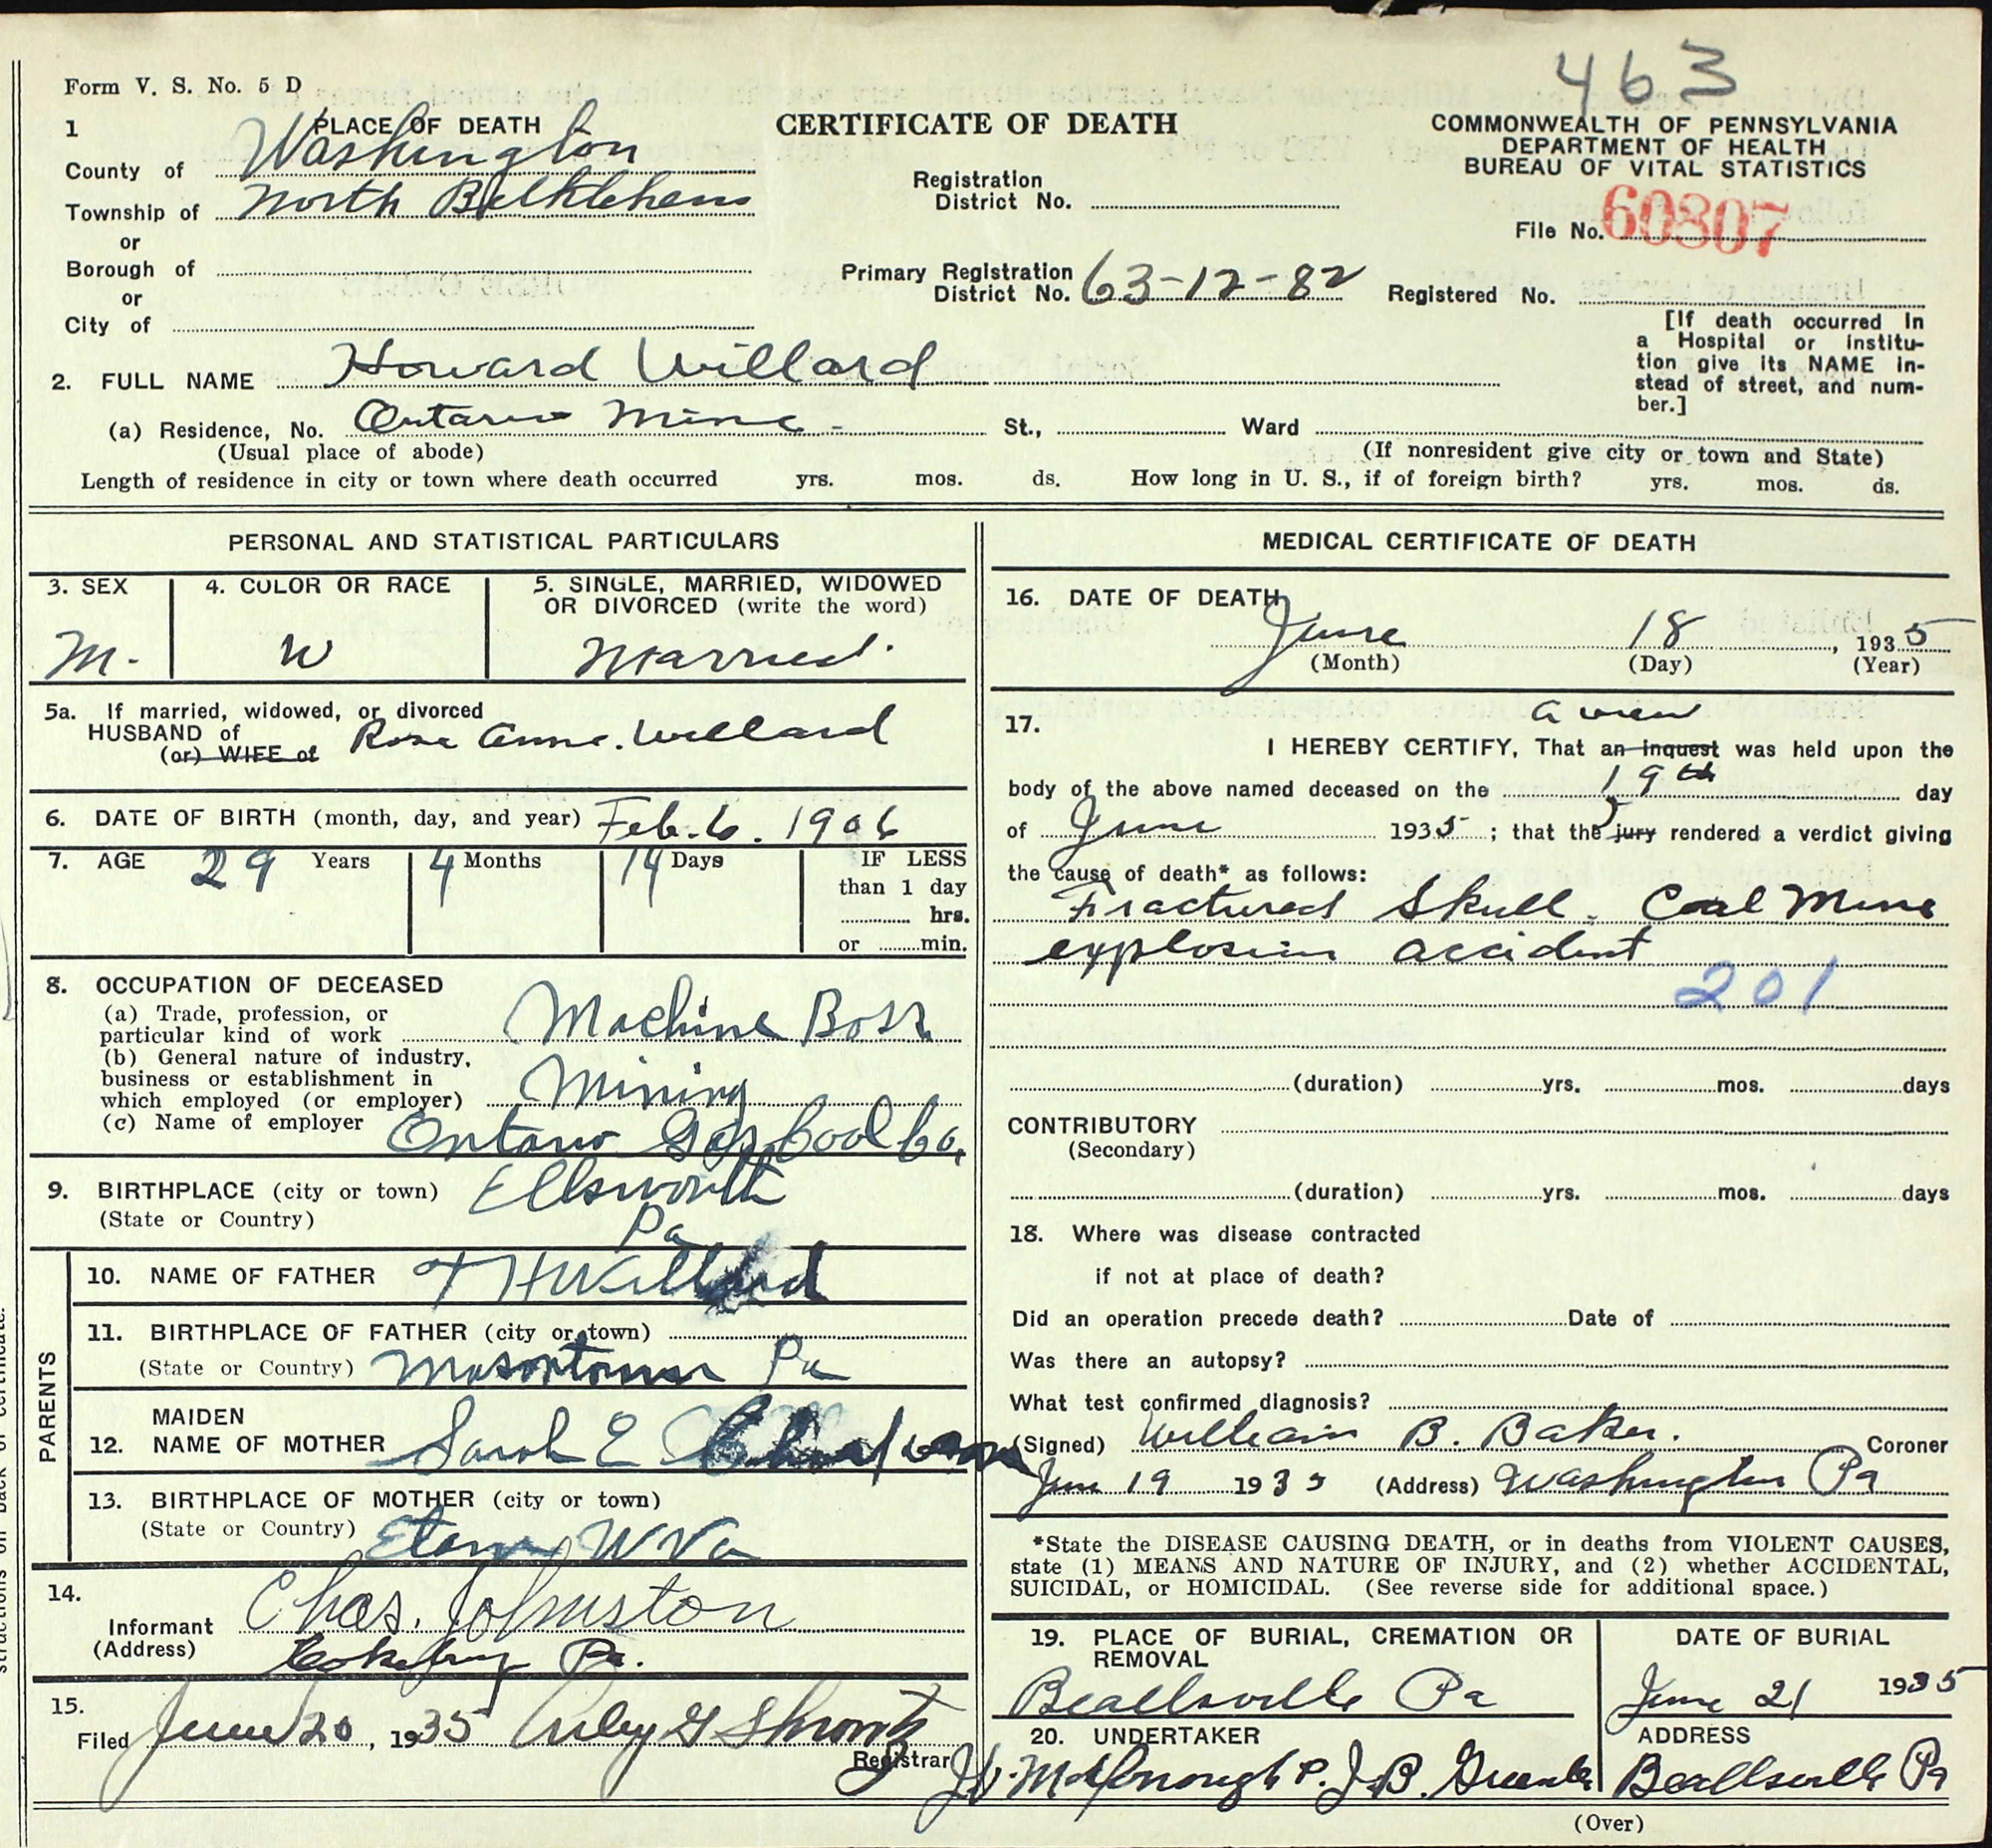 463
Form V. S. No. 5 D
1 PLACE OF DEATH
County of Washington
Township of North Bethlehem
or
Borough of
or
City of
CERTIFICATE OF DEATH
Registration
District No.
Primary Registration
District No. 63-12-82
COMMONWEALTH OF PENNSYLVANIA
DEPARTMENT OF HEALTH
BUREAU OF VITAL STATISTICS
File No. 60807
Registered No.
[If death occurred in
a Hospital or institu-
tion give its NAME in-
stead of street, and num-
ber.]
2. FULL NAME Howard Willard
(a) Residence, No. Ontario Mine St., Ward
(Usual place of abode) (If nonresident give city or town and State)
Length of residence in city or town where death occurred yrs. mos. ds. How long in U. S., if of foreign birth? yrs. mos. ds.
PERSONAL AND STATISTICAL PARTICULARS
3. SEX
M.
4. COLOR OR RACE
W
5. SINGLE, MARRIED, WIDOWED
OR DIVORCED (write the word)
Married.
5a. If married, widowed, or divorced
HUSBAND of Rose Anne. Willard
(or) WIFE of
6. DATE OF BIRTH (month, day, and year) Feb. 6. 1906
7. AGE 29 Years 4 Months 14 Days IF LESS
than 1 day
hrs.
or min.
8. OCCUPATION OF DECEASED
(a) Trade, profession, or
particular kind of work Machine Boss
(b) General nature of industry,
business or establishment in
which employed (or employer) Mining
(c) Name of employer Ontario Gas Coal Co.
9. BIRTHPLACE (city or town) Ellsworth
(State or Country) Pa
PARENTS
10. NAME OF FATHER T H Willard
11. BIRTHPLACE OF FATHER (city or town)
(State or Country) Masontown Pa
12. MAIDEN
NAME OF MOTHER Sarah E
13. BIRTHPLACE OF MOTHER (city or town)
(State or Country) W Va
14.
Informant Chas. Johnston
(Address) Cokeburg Pa.
15.
Filed June 20, 1935 G
Registrar
MEDICAL CERTIFICATE OF DEATH
16. DATE OF DEATH
June 18, 1935
(Month) (Day) (Year)
17. a view
I HEREBY CERTIFY, That an inquest was held upon the
body of the above named deceased on the 19th day
of June 1935; that the jury rendered a verdict giving
the cause of death* as follows:
Fractured Skull. Coal Mine
explosion accident
201
(duration) yrs. mos. days
CONTRIBUTORY
(Secondary)
(duration) yrs. mos. days
18. Where was disease contracted
if not at place of death?
Did an operation precede death? Date of
Was there an autopsy?
What test confirmed diagnosis?
(Signed) William B. Baker. Coroner
June 19 1935 (Address) Washington Pa
*State the DISEASE CAUSING DEATH, or in deaths from VIOLENT CAUSES,
state (1) MEANS AND NATURE OF INJURY, and (2) whether ACCIDENTAL,
SUICIDAL, or HOMICIDAL. (See reverse side for additional space.)
19. PLACE OF BURIAL, CREMATION OR
REMOVAL
Beallsville Pa
DATE OF BURIAL
June 21 1935
20. UNDERTAKER
J. B.
ADDRESS
Beallsville Pa
(Over)